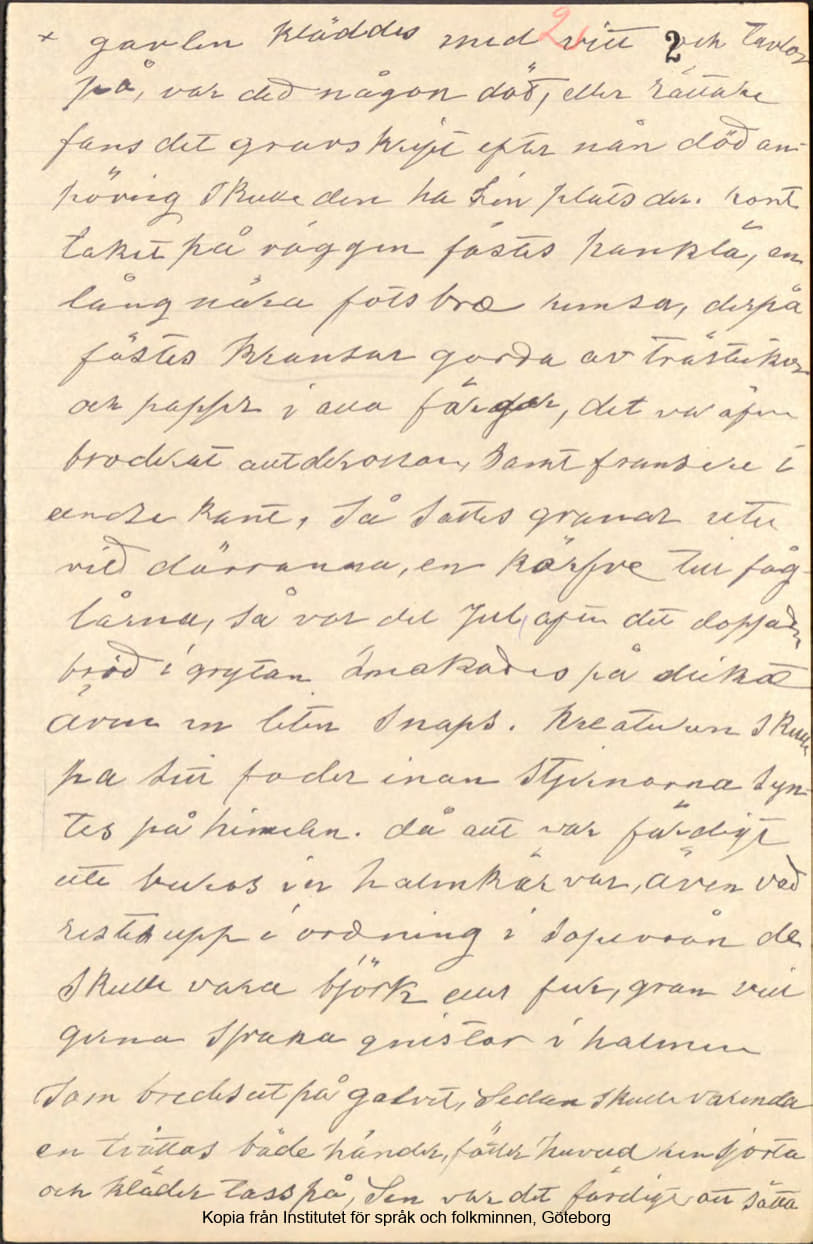 x gavlen kläddes med vitt och tavlor
2, 2
på, var ded någon död, eller rättare
fans det gravskrift efter nån död an-
hörig skulle den ha sin plats der. kont
taket på väggen fästes hanklä, en
lång nära fots bre remsa, derpå
fästes kransar gorda av trästickor
och papper i alla färger, det var äfven
broderat samt fransar i
endre kant, så sattes granar ute
vid dörrarna, en kärfve till fåg-
lårna, så var det Jul afen det doppades
bröd i grytan smakades på drikat
även en liten snaps. Kreaturen skulle
ha sitt foder inan stjernorna syn-
tes på himelen. då allt var färdigt
ute bukos in halmkärvar, även ved
restes upp i ordning i sopevrån de
skulle vara björk eller fur, gran vill
gerna spraka gnistor i halmen
som breddes ut på golvet, sedan skulle varenda
en tvättas både händer, fötter huvud ren sjorta
och kläder tass på, sen var det färdigt att sätta
Kopia från Institutet för språk och folkminnen, Göteborg